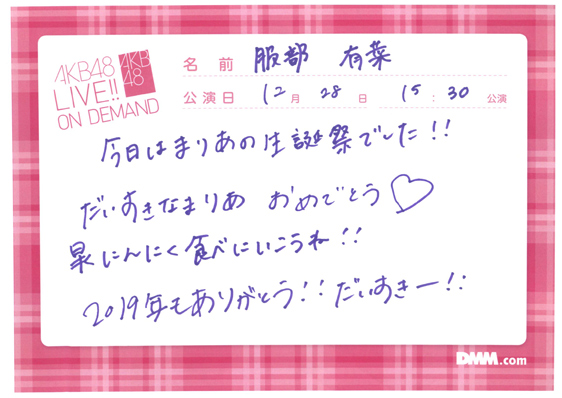 AKB48
LIVE!!
ON DEMAND
AKB
48
名前 服部 有菜
公演日 12月 28日 15:30 公演
今日はまりあの生誕祭でした!!
だいすきなまりあ おめでとう♡
にんにく食べにいこうね!!
2019年もありがとう!! だいすきー!!
DMM.com